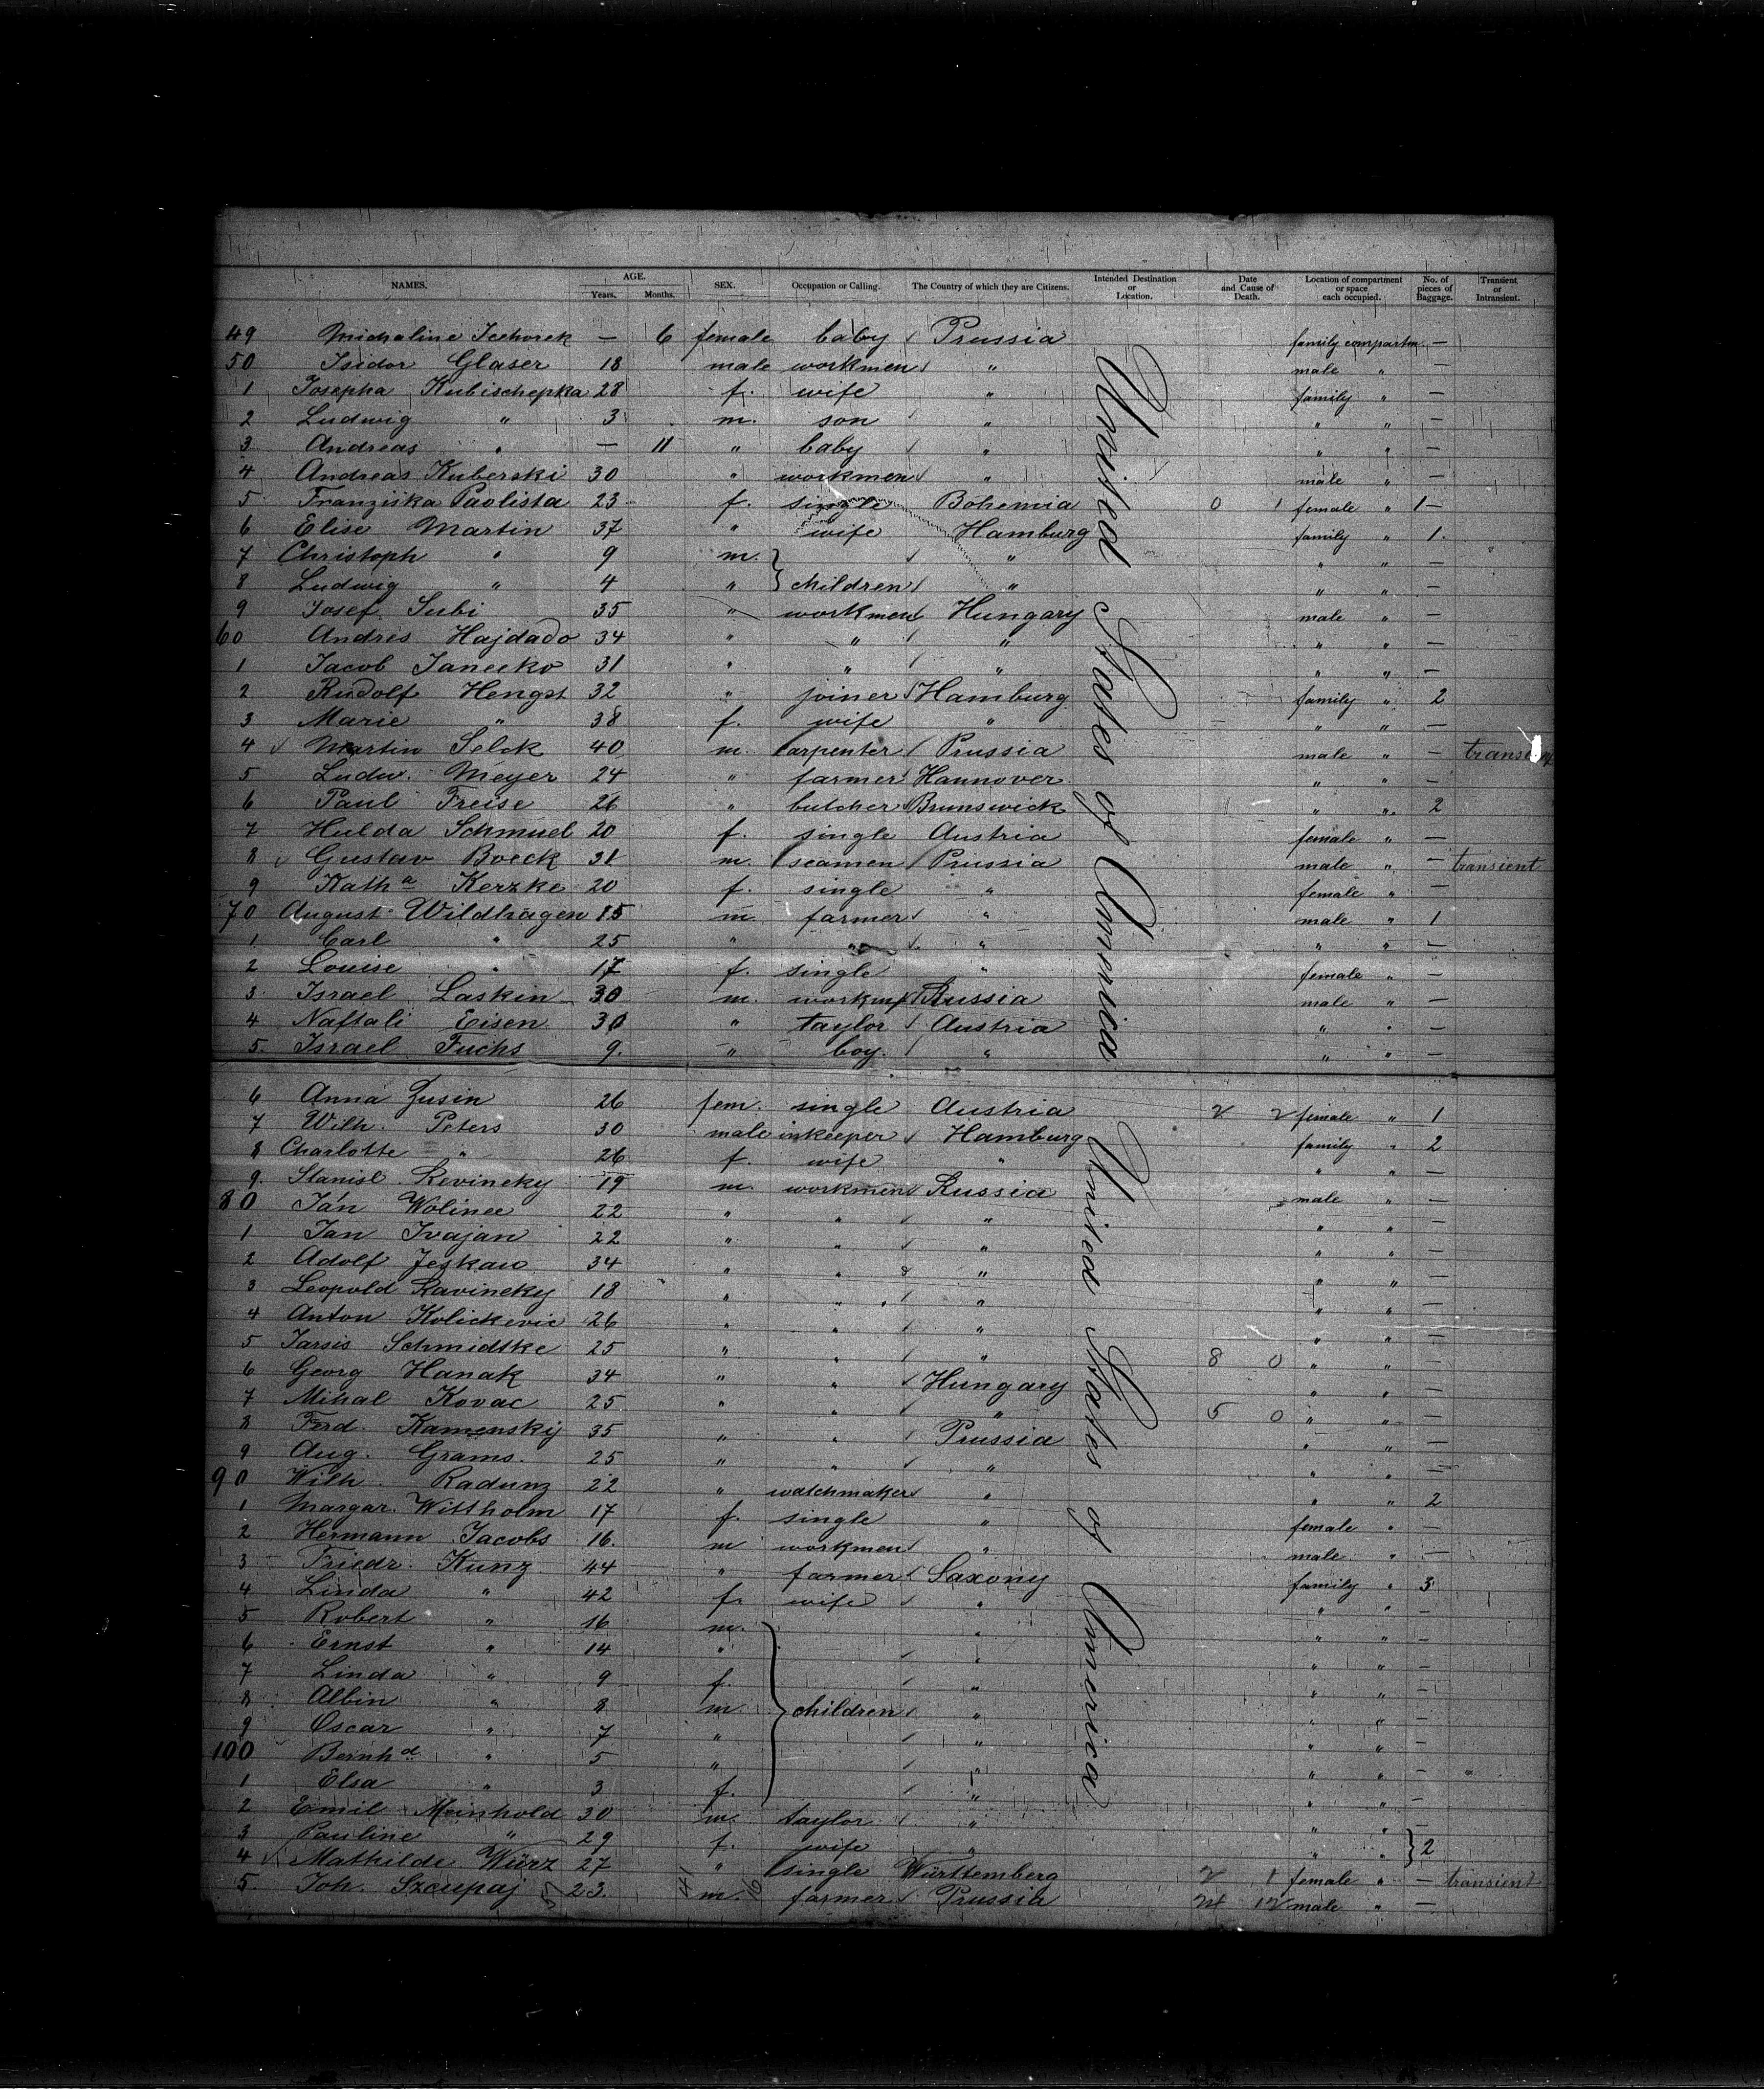 NAMES. AGE. Years. Months. SEX. Occupation or Calling. The Country of which they are Citizens. Intended Destination or Location. Date and Cause of Death. Location of compartment or space each occupied. No. of pieces of Baggage. Transient or Intransient.
49 Michaline — 6 female baby Prussia family compartm. —
50 Isidor Glaser 18 male workmen " male " —
1 Josepha Kubischepka 28 f. wife " family " —
2 Ludwig " 3 m. son " " " —
3 Andreas " — 11 " baby " " " —
4 Andreas Kuberski 30 " workmen " male " —
5 Franziska Paolista 23 f. single Bohemia 0 1 female " 1 —
6 Elise Martin 37 " wife Hamburg family " 1.
7 Christoph " 9 m. " " " —
8 Ludwig " 4 " children " " " —
9 Josef Subi 35 " workmen Hungary male " —
60 Andres Hajdado 34 " " " " " —
1 Jacob Janecko 31 " " " " " —
2 Rudolf Hengst 32 " joiner Hamburg family " 2
3 Marie " 38 f. wife " " " —
4 Martin Selck 40 m. carpenter Prussia male " — transient
5 Ludw. Meyer 24 " farmer Hannover " " —
6 Paul Freise 26 " butcher Brunswick " " 2
7 Hulda Schmuel 20 f. single Austria female " —
8 Gustav Boeck 31 m. seamen Prussia male " — transient
9 Katha Kerzke 20 f. single " female " —
70 August Wildhagen 15 m. farmer " male " 1
1 Carl " 25 " " " " " —
2 Louise " 17 f. single " female " —
3 Israel Laskin 30 m. workm Russia male " —
4 Naftali Eisen 30 " taylor Austria " " —
5. Israel Fuchs 9. " boy. " " " —
United States of America
6 Anna Zusin 26 fem. single Austria 2 2 female " 1
7 Wilh. Peters 30 male inkeeper Hamburg family " 2
8 Charlotte " 26 f. wife " " " —
9. Stanisl. Levincky 19 m. workmen Russia male " —
80 Ján Wolinec 22 " " " " " —
1 Jan Ivajan 22 " " " " " —
2 Adolf Jeskaw 34 " " " " " —
3 Leopold Ravincky 18 " " " " " —
4 Anton Kolickevic 26 " " " " " —
5 Tarsis Schmidtke 25 " " " 8 0 " " —
6 Georg Hanak 34 " " Hungary " " —
7 Mihal Kovac 25 " " " 5 0 " " —
8 Ferd. Kamenskij 35 " " Prussia " " —
9 Aug. Grams. 25 " " " " " —
90 Wilh. Radunz 22 " watchmaker " " " 2
1 Margar. Wittholm 17 f. single " female " —
2 Hermann Jacobs 16. m workmen " male " —
3 Friedr. Kunz 44 " farmer Saxony family " 3
4 Linda " 42 f. wife " " " —
5 Robert " 16 m. " " " —
6 Ernst " 14 " " " " —
7 Linda " 9 f. " " " —
8 Albin " 8 m. children " " " —
9 Oscar " 7 " " " " —
100 Bernhd " 5 " " " " —
1 Elsa " 3 f. " " " —
2 Emil Meinhold 30 m. taylor " " "
3 Pauline " 29 f. wife " " " 2
4 Mathilde Würz 27 " single Württemberg 2 1 female " — transient
5 Joh. Szcupaj 23. m. farmer Prussia 24 12 male " —
United States of America